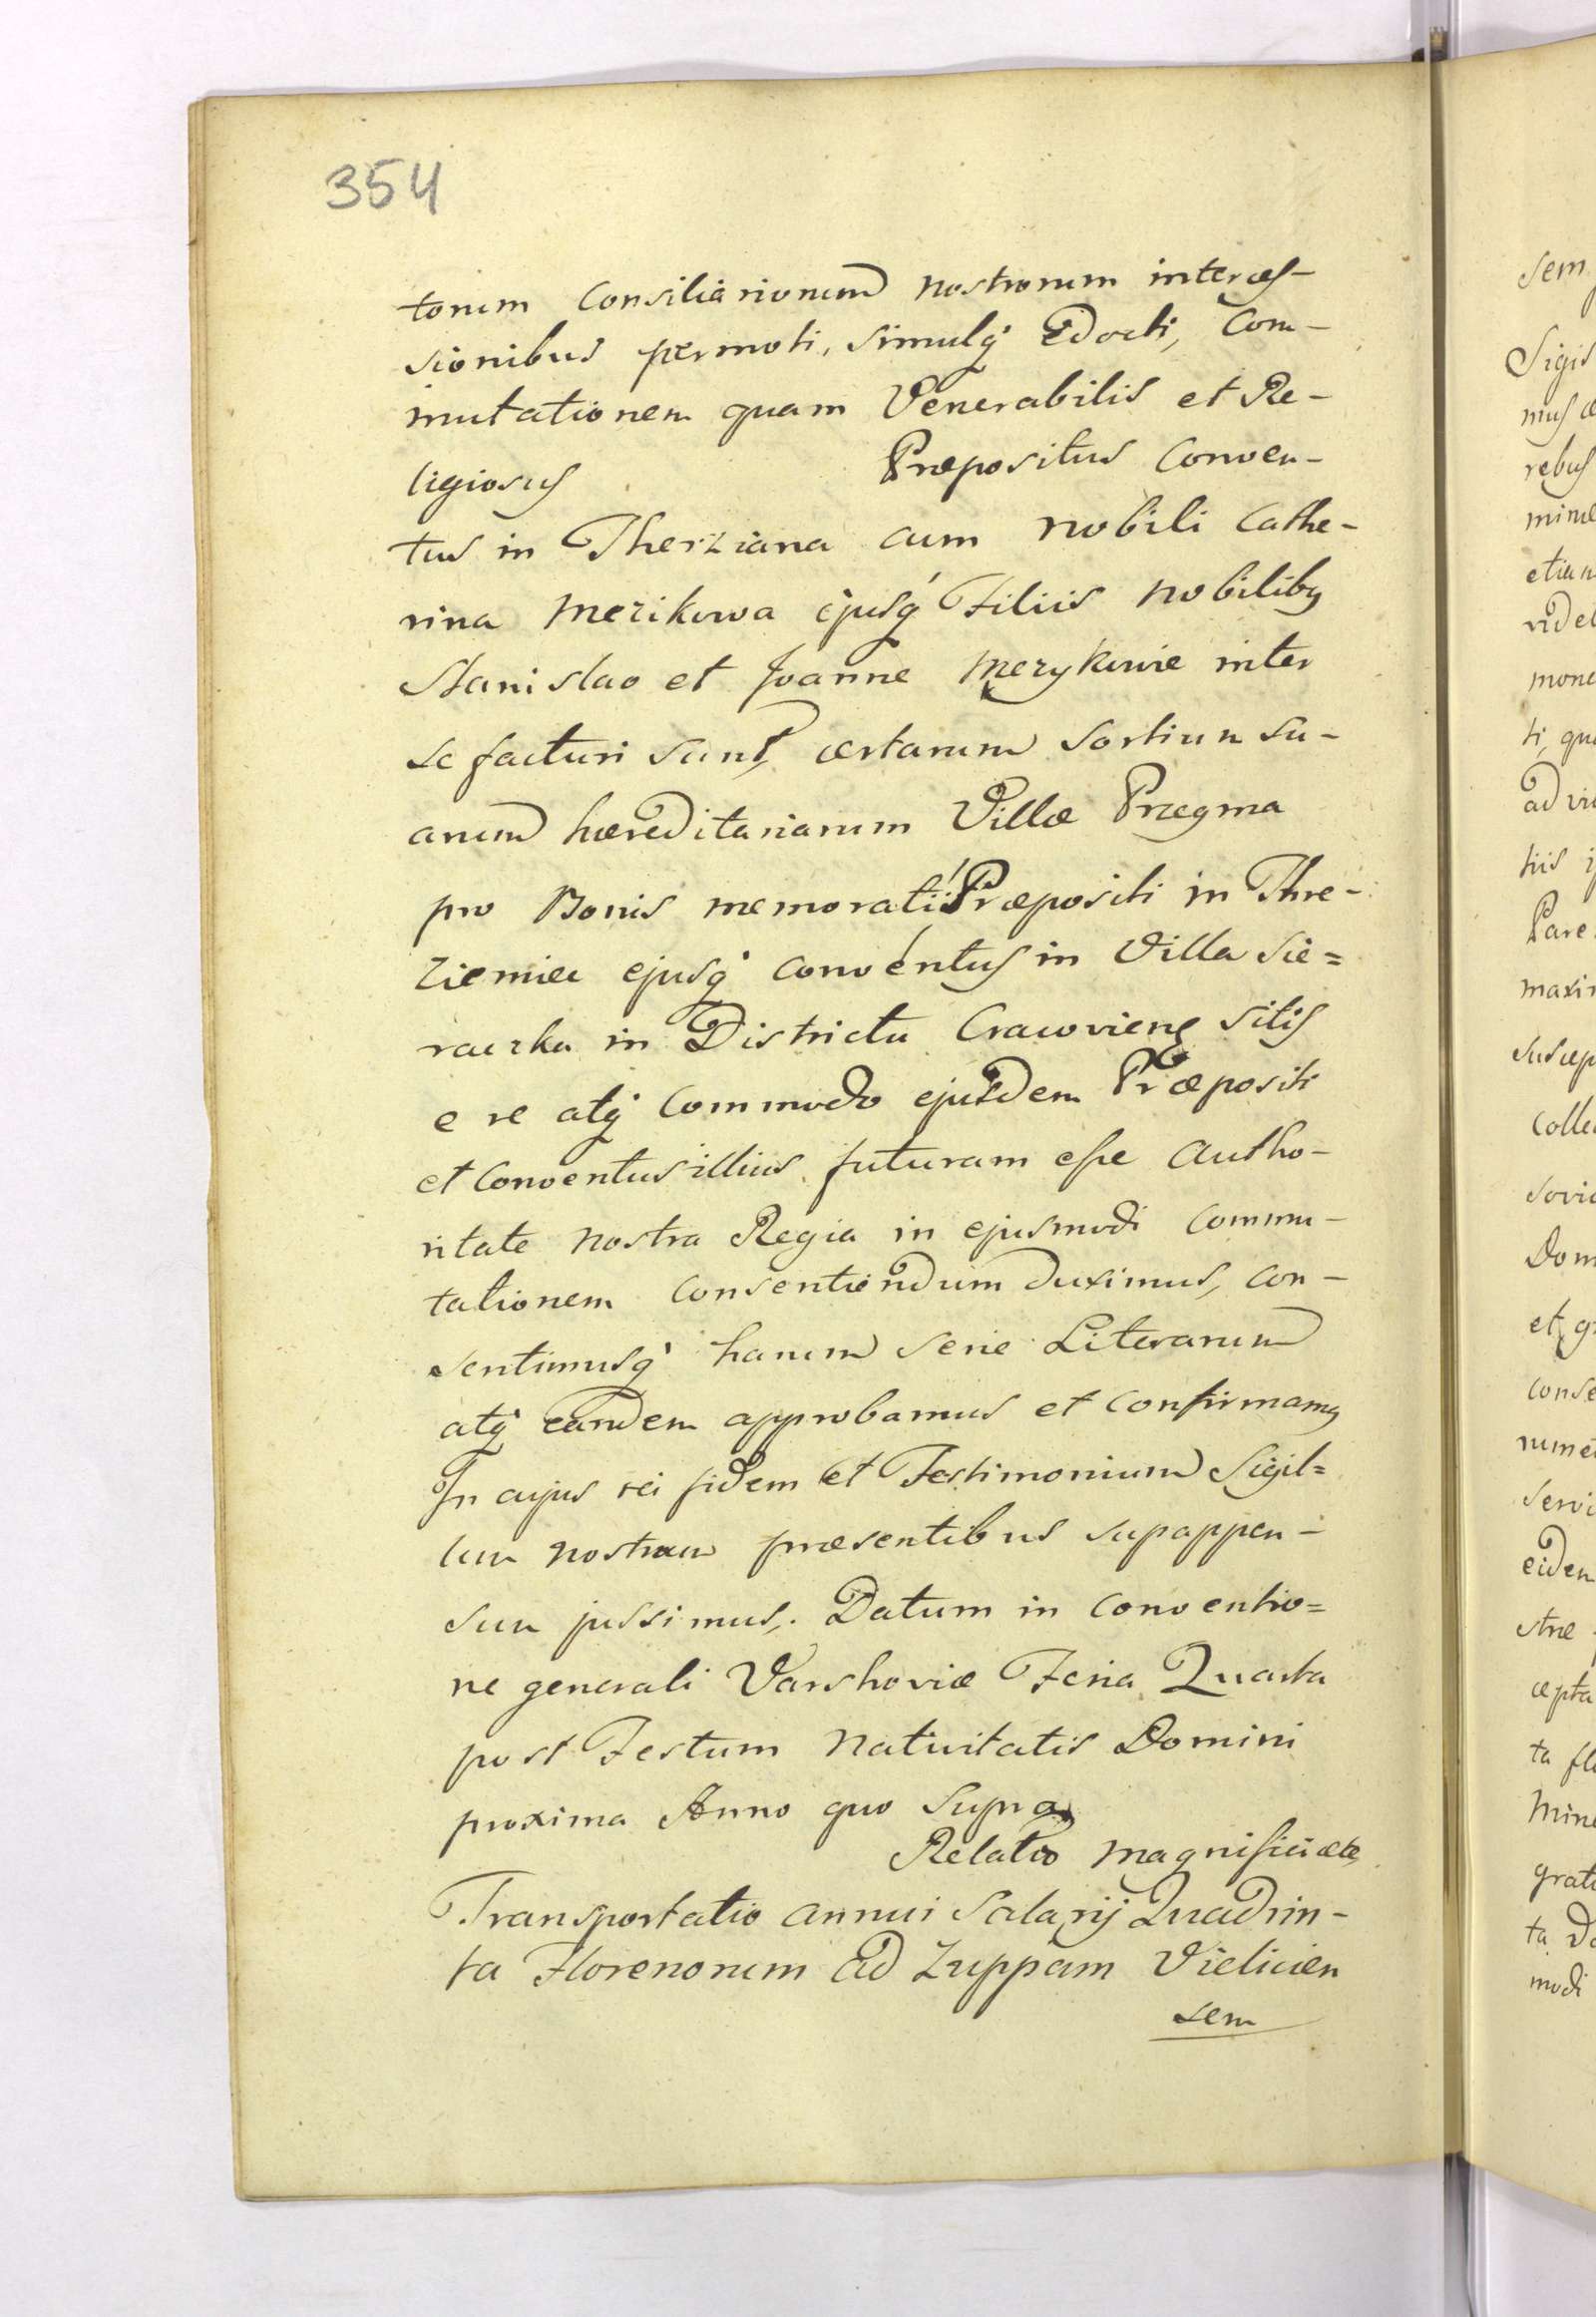 354
torum Consiliariorum nostrorum interces-
sionibus permoti, simulq' Edocti, Com-
mutationem quam Venerabilis et Re-
ligiosus Præpositus Conven-
tus in Therziana cum nobili Cathe-
rina Merikowa ejusq' Filiis nobilibg
Stanislao et Joanne Merykowie inter
se facturi sunt, certarum Sortium Su-
arum hæreditariarum Villæ Przegma
pro Bonis memorati Præpositi in Thre-
ziemiec ejusq' conventus in Villa Sie=
raczka in Districtu Cracoviens sitis
e re atq' Commodo ejusdem Præpositi
et Conventus illius futuram esse Autho-
ritate nostra Regia in ejusmodi Commu-
tationem Consentiendum duximus, con-
sentimusq' harum Serie Literarum
atq' eandem approbamus et Confirmamg
In cujus rei fidem et Testimonium Sigil=
lum nostrum præsentibus supappen-
sum jussimus. Datum in Conventio=
ne generali Varshoviæ Feria Quarta
post Festum Nativitatis Domini
proxima Anno quo Supra
Relatio Magnifici etc
Transportatio annui Salarij Quadrin-
ta Florenorum ad Zuppam Vielicien
sem
sem
Sigis
mus
rebus
etiam
videl
ti, qu
Pare
maxi
suscep
Colle
Dom
et g
conse
servi
eiden
stræ
cepta
ta fl
grat
modi